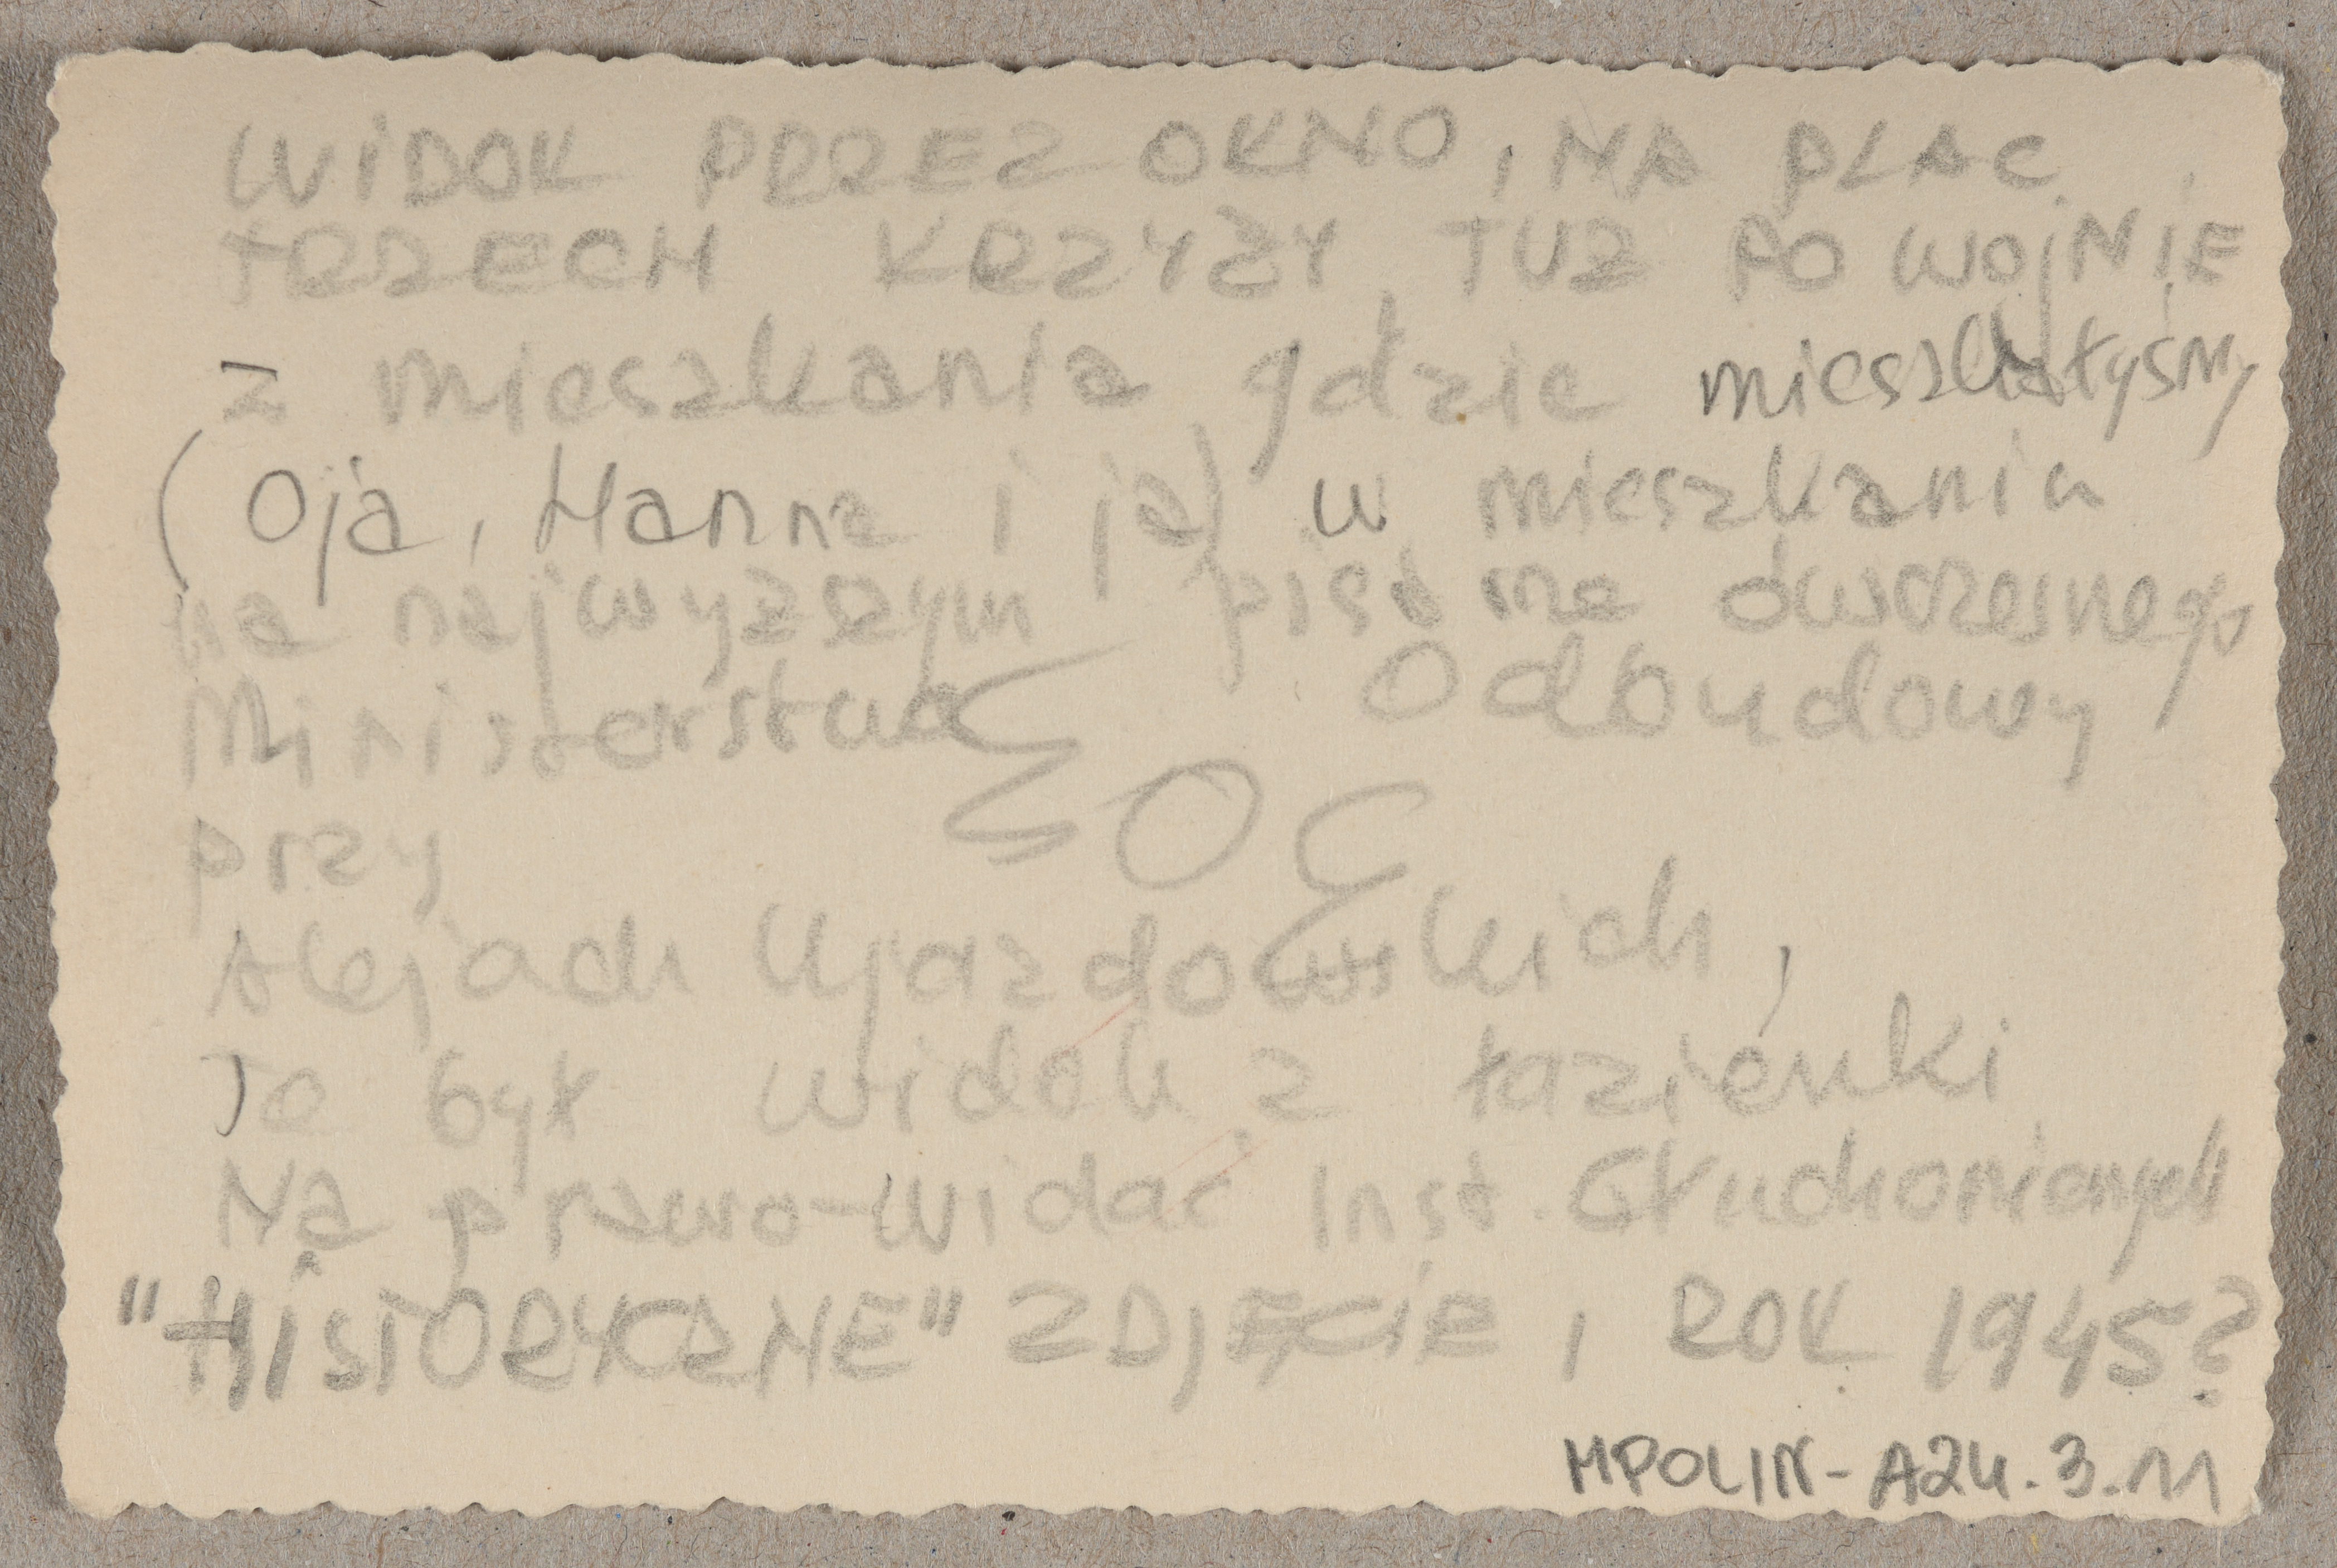 WIDOK PRZEZ OKNO, NA PLAC
TRZECH KRZYŻY TUŻ PO WOJNIE
z mieszkania gdzie mieszkałyśmy
(Oja, Hanna i ja) w mieszkaniu
na najwyższym piętrze ówczesnego
Ministerstwa Odbudowy
przy
Alejach Ujazdowskich,
To był widok z łazienki
Na prawo-widać Inst. Głuchoniemych
"HISTORYCZNE" ZDJĘCIE, ROK 1945?
MPOLIN-A24.3.11